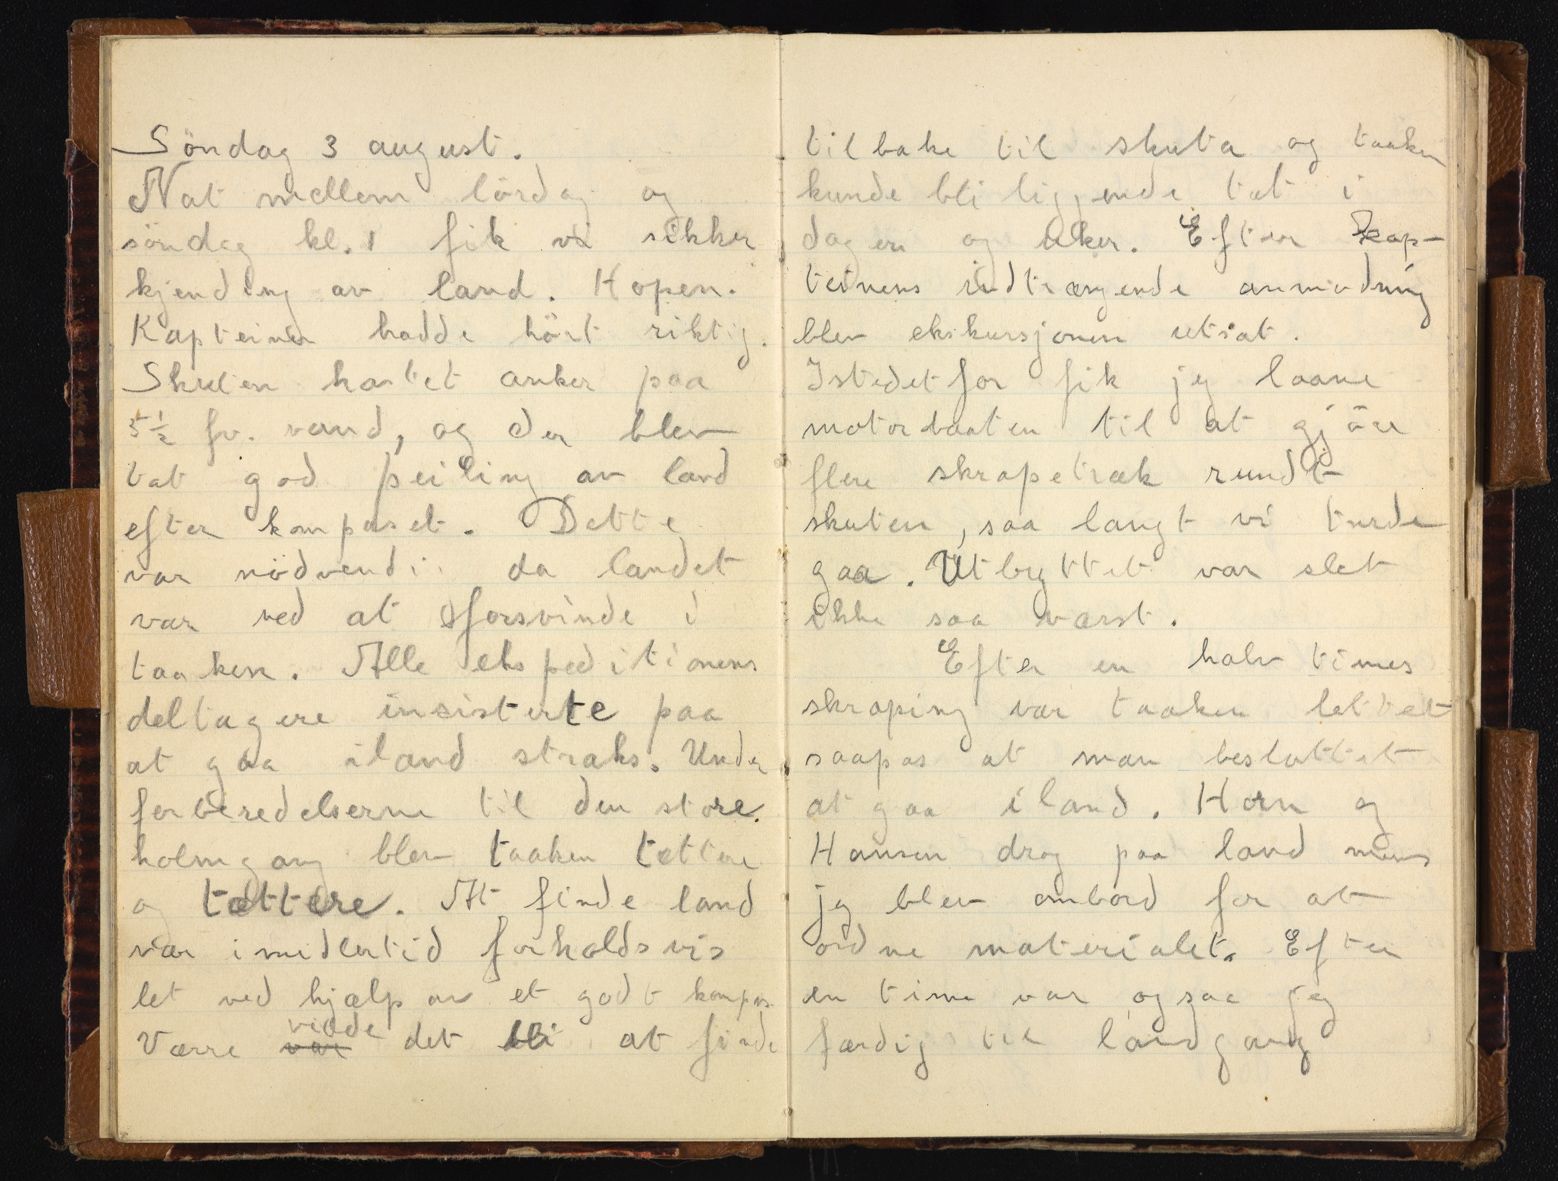 Söndag 3 august.
Nat mellem lördag og
söndag kl. 1 fik vi sikker
kjending av land. Hopen.
Kapteinen hadde hört riktig.
Skuten kastet anker paa
5½ fv. vand, og der blev
tat god peiling av land
efter kompaset. Dette
var nödvendig da landet
var ved at forsvinde i
taaken. Alle ekspeditionens
deltagere insisterte paa
at gaa iland straks. Under
forberedelserne til den store
holmgang blev taaken tættere
og tættere. At finde land
var imidlertid forholdsvis
let ved hjælp av et godt kompas.
Værre var vilde det bli at finde
tilbake til skuta og taaken
kunde bli liggende tæt i
dager og uker. Efter kap-
teinens indtrængende anmodning
blev ekskursjonen utsat.
Istedetfor fik jeg laane
motorbaaten til at gjöre
flere skrapetræk rundt
skuten, saa langt vi turde
gaa. Utbyttet var slet
ikke saa værst.
Efter en halv times
skraping var taaken lettet
saapas at man besluttet
at gaa iland. Horn og
Hansen drog paa land mens
jeg blev ombord for at
ordne materialet. Efter
en time var ogsaa jeg
færdig til landgang